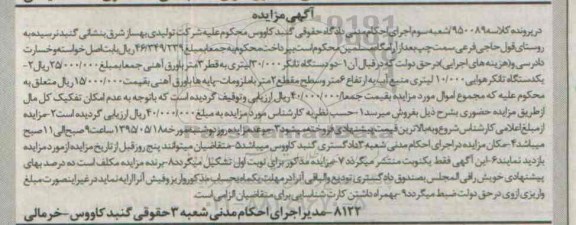 آگهی مزایده
در پرونده کلاسه ۹۵۰۰۸۹ شعبه سوم اجرای احکام مدنی دادگاه حقوقی گنبد کاووس محکوم علیه شرکت تولیدی بهساز شرق بنشانی گنبد نرسیده به
روستای قول حاجی فرعی سمت چپ بعد از آرامگاه مسلمین محکوم است بپرداخت محکوم به جمعا بمبلغ ۴۶/۳۴۹/۲۳۹ ریال بابت اصل خواسته و خسارت
دادرسی و (هزینه های اجرایی) در حق دولت که در قبال آن ۱-دو دستگاه تانکر ۳۰/۰۰۰ لیتری به قطر ۳ متر با ورق آهنی جمعا بمبلغ ۲۵/۰۰۰/۰۰۰ ریال ۲-
یکدستگاه تانکر هوایی ۱۰/۰۰۰ لیتری منبع آب به ارتفاع ۶ متر و سطح مقطع ۲ متر با ملزومات-پایه ها با ورق آهنی بقیمت ۱۵/۰۰۰/۰۰۰ ریال متعلق به
محکوم علیه که مجموع اموال مورد مزایده بقیمت جمعا ۴۰/۰۰۰/۰۰۰ ریال ارزیابی و توقیف گردیده است که باتوجه به عدم امکان تفکیک کل مال
از طریق مزایده حضوری بشرح ذیل بفروش میرسد ۱-حسب نظریه کارشناس مورد مزایده به مبلغ ۴۰/۰۰۰/۰۰۰ ریال ارزیابی گردیده است ۲-مزایده
از مبلغ اعلامی کارشناس شروع و به بالاترین قیمت پیشنهادی فروخته میشود ۳-موعد مزایده روز دوشنبه مورخه ۱۳۹۵/۰۵/۱۸ ساعت ۹ صبح الی ۱۱ صبح
میباشد ۴-مکان مزایده در اجرای احکام مدنی شعبه ۳ دادگستری گنبد کاووس میباشد ۵-متقاضیان میتوانند پنج روز قبل از تاریخ مزایده از مورد مزایده
بازدید نمایند ۶-این آگهی فقط یک نوبت منتشر میگردد ۷-مزایده مذکور برای نوبت اول تشکیل میگردد ۸-برنده مزایده مکلف است ده درصد بهای
پیشنهادی خویش را فی المجلس به صندوق دادگستری تودیع و الباقی آنرا در مهلت یکماه بحساب مذکور واریز و فیش آنرا ارایه نماید در غیر اینصورت مبلغ
واریزی از وی در حق دولت ضبط میگردد ۹-بهمراه داشتن کارت شناسایی برای متقاضیان الزامی است
۸۱۲۲-مدیر اجرای احکام مدنی شعبه ۳ حقوقی گنبد کاووس-خرمالی